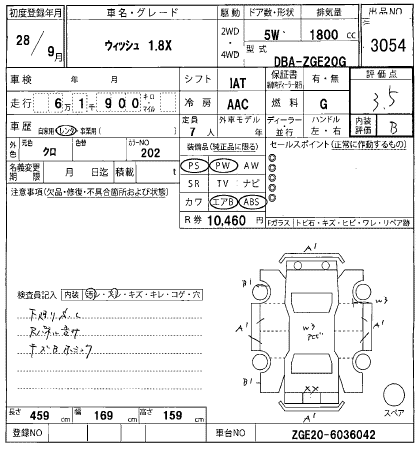 初度登録年月 車名・グレード 駆動 ドア数・形状 排気量 出品NO
28 / 9月 ウィッシュ 1.8X 2WD ・ 4WD 5W 1800 cc 3054
型式 DBA-ZGE20G
車検 年 月 シフト IAT 保証書 有・無 評価点
走行 6万1千900 キロ・マイル 冷房 AAC 燃料 G 3.5
車歴 自家用 レンタ 事業用( ) 定員 7人 外車モデル 年 ディーラー ・ 並行 ハンドル 左・右 内装評価 B
外色 元色 クロ 色替 カラーNO 202 装備品(純正品に限る) セールスポイント(正常に作動するもの)
名義変更期限 月 日迄 積載 t PS PW AW ◎
SR TV ナビ ◎
注意事項(欠品・修復・不具合箇所および状態) カワ エアB ABS ◎
R券 10,460円 Fガラス トビ石・キズ・ヒビ・ワレ・リペア跡
検査員記入 内装 汚レ・スレ・キズ・キレ・コゲ・穴
下廻りサビ
A1
A1
B1
W3
W3
A1
A1
B1
XX
A1
スペア
長さ 459 cm 幅 169 cm 高さ 159 cm
登録NO 車台NO ZGE20-6036042